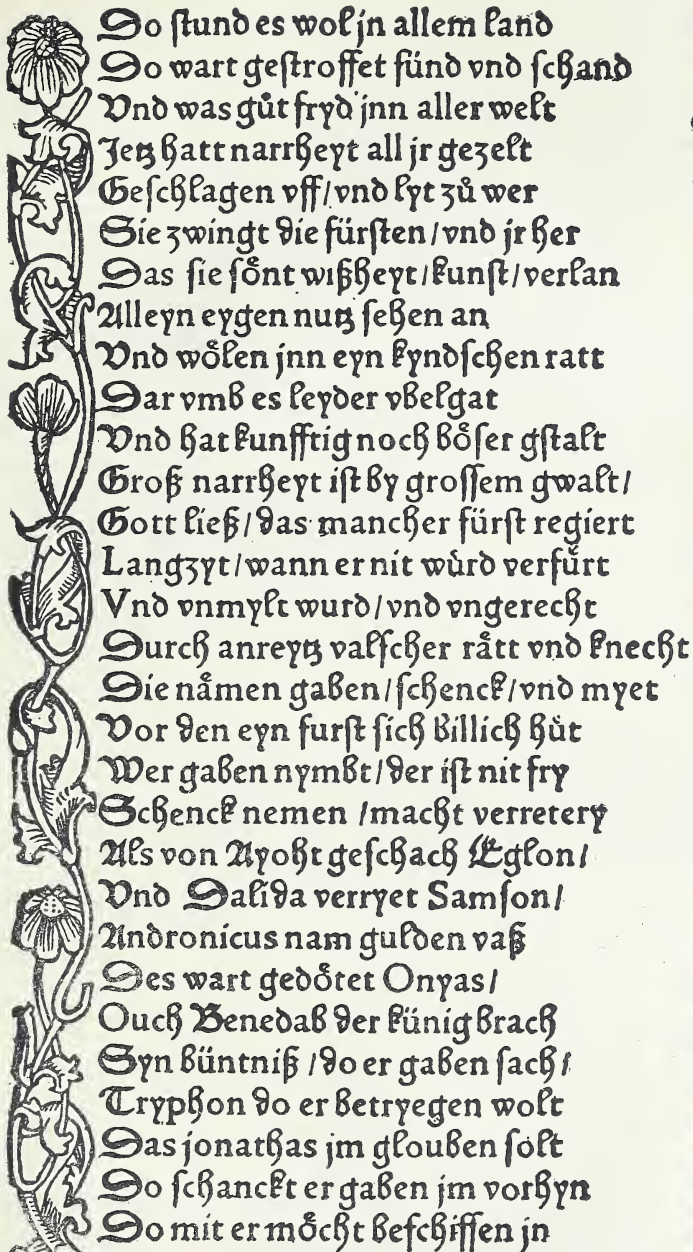 Do ſtund es wol jn allem land
Do wart geſtroffet ſünd vnd ſchand
Vnd was gůt fryd jnn aller welt
Jetz hatt narrheyt all jr gezelt
Geſchlagen vff / vnd lyt zů wer
Sie zwingt die fürſten / vnd jr her
Das ſie ſoͤnt wißheyt / kunſt / verlan
Alleyn eygen nutz ſehen an
Vnd woͤlen jnn eyn kyndſchen ratt
Dar vmb es leyder vbel gat
Vnd hat kunfftig noch boͤſer gſtalt
Groß narrheyt iſt by groſſem gwalt /
Gott ließ / das mancher fürſt regiert
Langzyt / wann er nit wůrd verfuͤrt
Vnd vnmylt wurd / vnd vngerecht
Durch anreytz valſcher raͤtt vnd knecht
Die naͤmen gaben / ſchenck / vnd myet
Vor den eyn furſt ſich billich huͤt
Wer gaben nymbt / der iſt nit fry
Schenck nemen / macht verretery
Als von Ayoht geſchach Eglon /
Vnd Dalida verryet Samſon /
Andronicus nam gulden vaß
Des wart gedoͤtet Onyas /
Ouch Benedab der künig brach
Syn büntniß / do er gaben ſach /
Tryphon do er betryegen wolt
Das jonathas jm glouben ſolt
Do ſchanckt er gaben jm vorhyn
Do mit er moͤcht beſchiſſen jn